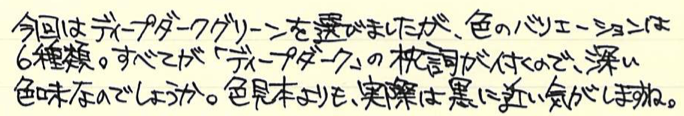 今回はディープダークグリーンを選びましたが、色のバリエーションは
6種類。すべてが「ディープダーク」の枕詞が付くので、深い
色味なのでしょうか。色見本よりも、実際は黒に近い気がしますね。